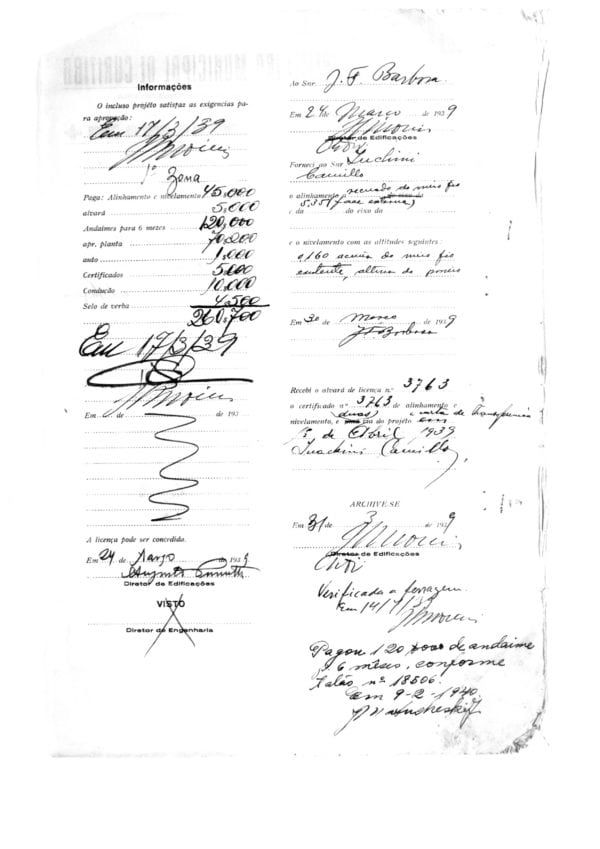 Informações
O incluso projéto satisfaz as exigencias pa-
ra aprovação:
Em 17/3/39
1º Zona
Paga: Alinhamento e nivelamento 45,000
alvará 5,000
Andaimes para 6 mezes 120,000
apr. planta 70,200
auto 1,000
Certificados 5,000
Condução 10,000
Selo de verba 4,500
260.700
Em 17/3/39
Em de de 193
A licença pode ser concedida.
Em 24 de Março de 1939
Diretor de Edificações
VISTO
Diretor de Engenharia
Ao Snr. J. F. Barbosa
Em 24 de Março de 1939
de Edificações
Forneci ao Snr
Camillo
o alinhamento recuado do meio fio
5,35 (face externa)
e da do eixo da
e o nivelamento com as altitudes seguintes:
0,160 acima do meio fio
existente, altura do
Em 30 de Março de 1939
J. F. Barbosa
Recebi o alvará de licença n.º 3763
o certificado n.º 3763 de alinhamento e
nivelamento, e (duas) via do projéto
e carta de
de Abril 1939
Camillo
ARCHIVE-SE
Em 31 de 3 de 1939
Diretor de Edificações
Verificada a ferragem
Em 14/7/39
Pagou 120 de andaime
p. 6 mêses, conforme
talão nº 18506.
em 9-2-1940.